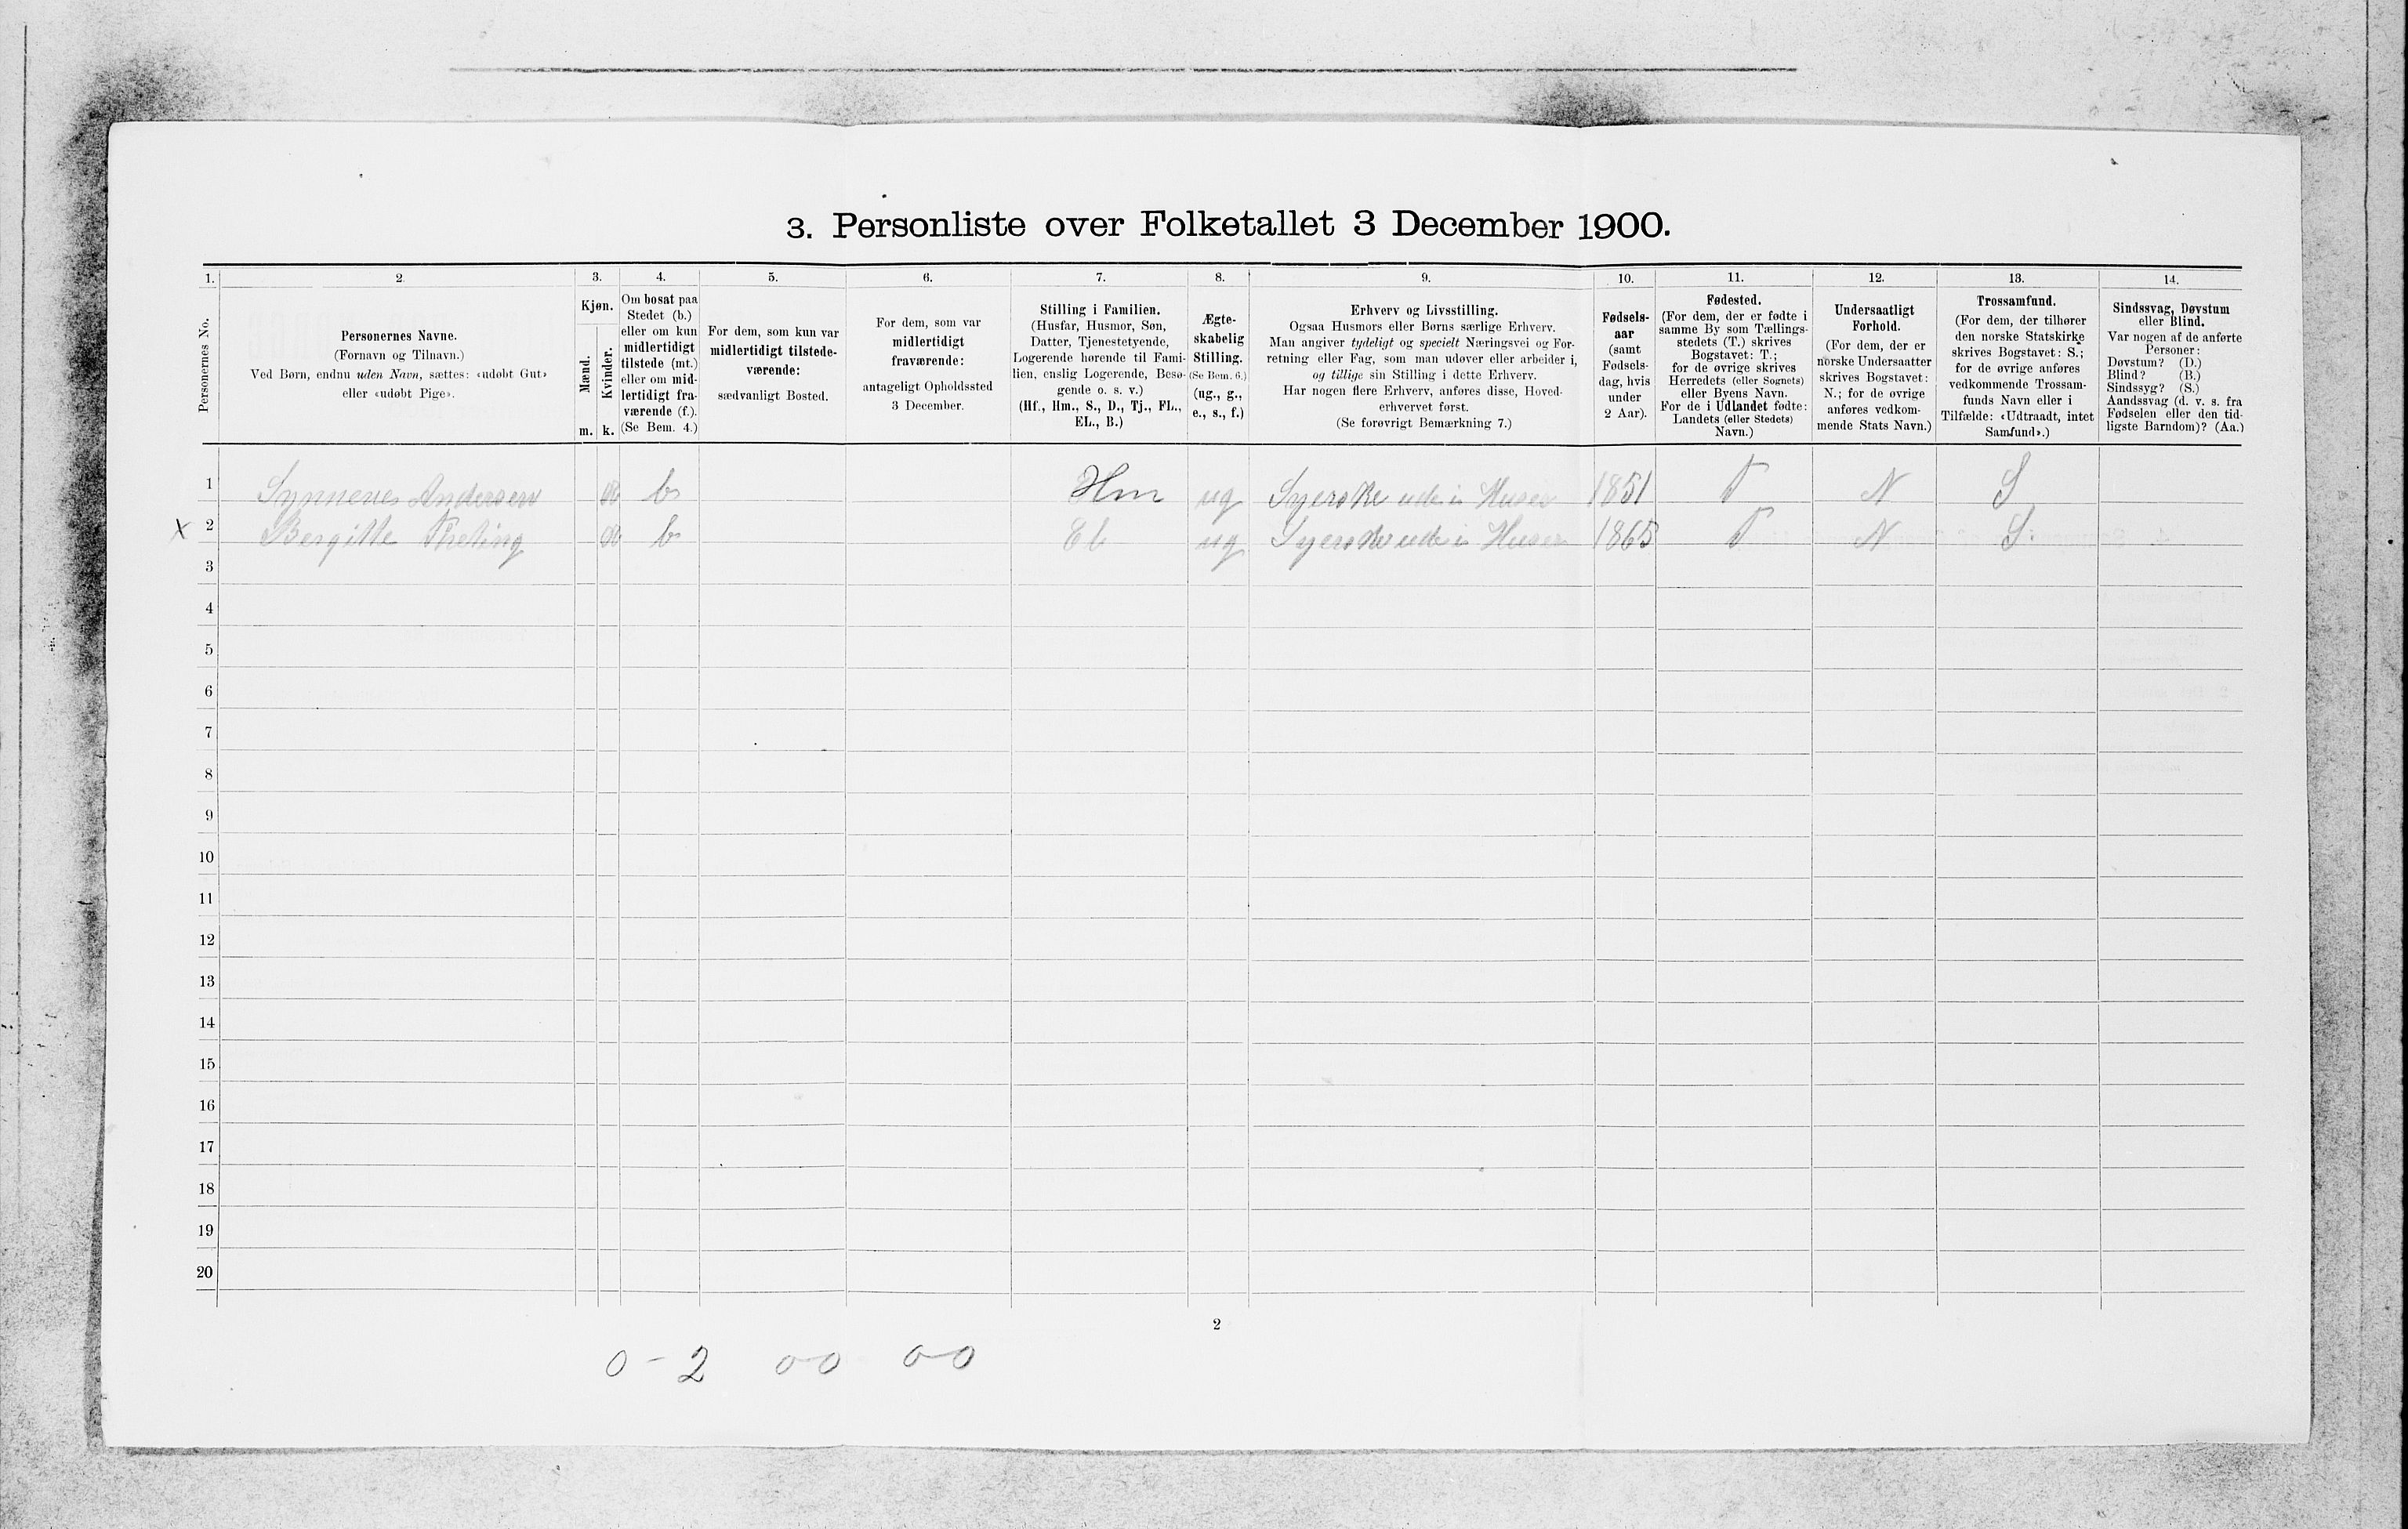 3. Personliste over Folketallet 3 December 1900.
1. 2. 3. 4. 5. 6. 7. 8. 9. 10. 11. 12. 13. 14.
Personernes No.
Personernes Navne.
(Fornavn og Tilnavn.)
Ved Børn, endnu uden Navn, sættes: «udøbt Gut»
eller «udøbt Pige».
Kjøn.
Mænd.
Kvinder.
m. k.
Om bosat paa
Stedet (b.)
eller om kun
midlertidigt
tilstede (mt.)
eller om mid-
lertidigt fra-
værende (f.).
(Se Bem. 4.)
For dem, som kun var
midlertidigt tilstede-
værende:
sædvanligt Bosted.
For dem, som var
midlertidigt
fraværende:
antageligt Opholdssted
3 December.
Stilling i Familien.
(Husfar, Husmor, Søn,
Datter, Tjenestetyende,
Logerende hørende til Fami-
lien, enslig Logerende, Besø-
gende o. s. v.)
(Hf., Hm., S., D., Tj., FL.,
EL., B.)
Ægte-
skabelig
Stilling.
(Se Bem. 6.)
(ug., g.,
e., s., f.)
Erhverv og Livsstilling.
Ogsaa Husmors eller Børns særlige Erhverv.
Man angiver tydeligt og specielt Næringsvei og For-
retning eller Fag, som man udøver eller arbeider i,
og tillige sin Stilling i dette Erhverv.
Har nogen flere Erhverv, anføres disse, Hoved-
erhvervet først.
(Se forøvrigt Bemærkning 7.)
Fødsels-
aar
(samt
Fødsels-
dag, hvis
under
2 Aar).
Fødested.
(For dem, der er fødte i
samme By som Tællings-
stedets (T.) skrives
Bogstavet: T.;
for de øvrige skrives
Herredets (eller Sognets)
eller Byens Navn.
For de i Udlandet fødte:
Landets (eller Stedets)
Navn.)
Undersaatligt
Forhold.
(For dem, der er
norske Undersaatter
skrives Bogstavet:
N.; for de øvrige
anføres vedkom-
mende Stats Navn.)
Trossamfund.
(For dem, der tilhører
den norske Statskirke
skrives Bogstavet: S.;
for de øvrige anføres
vedkommende Trossam-
funds Navn eller i
Tilfælde: «Udtraadt, intet
Samfund».)
Sindssvag, Døvstum
eller Blind.
Var nogen af de anførte
Personer:
Døvstum? (D.)
Blind? (B.)
Sindssyg? (S.)
Aandssvag (d. v. s. fra
Fødselen eller den tid-
ligste Barndom)? (Aa.)
1 Synneves Andersen b Hm ug Syerske ude i Huser 1851 T N S
X 2 Bergitte b El ug Syerske ude i Huser 1865 T N S
3
4
5
6
7
8
9
10
11
12
13
14
15
16
17
18
19
20
2
0-2 0-0 0-0